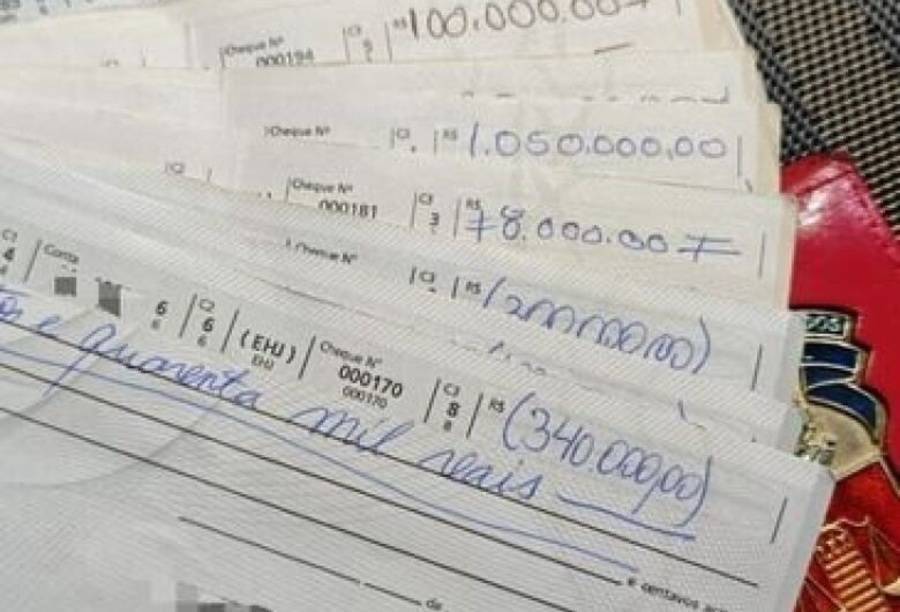 Cheque Nº 000194 C3 9 R$ 100.000.00
Cheque Nº C3 R$ 1.050.000,00
Cheque Nº 000181 C3 3 R$ 78.000.00
Cheque Nº C3 R$
C1 4 Conta 6 C2 6 (EHJ) Cheque Nº 000170 C3 8 R$ (340.000,00)
6 6 EHJ 000170 8
e quarenta mil reais
e centavos
de